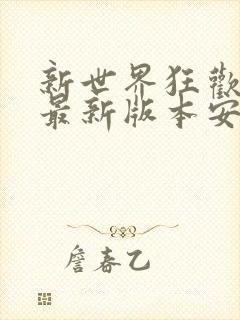 新世界狂歡
最新版本安
詹春乙